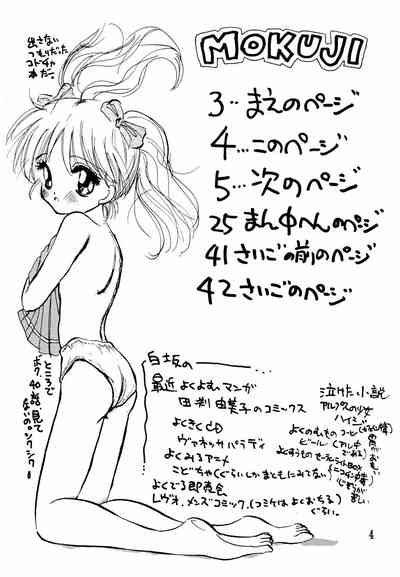 出さない
つもりだった
コドチャ
本だー
MOKUJI
3‥まえのページ
4…このページ
5…次のページ
25 まん中へんのページ
41 さいごの前のページ
42 さいごのページ
ところで
ボク、40話見て
ないの。シクシク
白坂の
最近よくよむマンガ
由美子のコミックス
よくきくCD
ヴァネッサパラディ
よくみるアニメ
こどちゃ(ぐらいしかまともにみてない)
よくでる即売会
レヴォ、メンズコミック、(コミケはよくおちる)
泣けた小説
アルプスの少女
ハイジ
よくのむもの コーヒー
ビール
よくすうもの セーラムライトBOX
ぐらい。
4